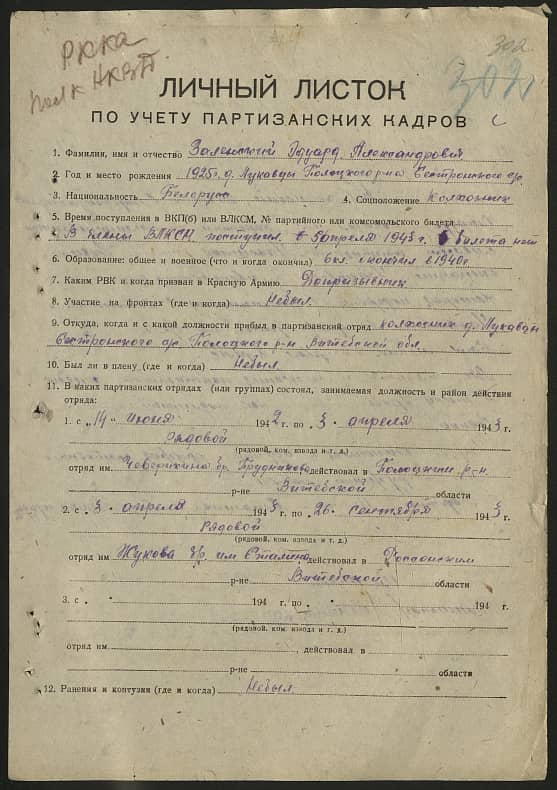 РККА
полк НКВД
302
ЛИЧНЫЙ ЛИСТОК
ПО УЧЕТУ ПАРТИЗАНСКИХ КАДРОВ
1. Фамилия, имя и отчество Эдуард Александрович
2. Год и место рождения 1925г. д. Лукавцы Полоцкого р-на
3. Национальность Белорус 4. Соцположение колхозник
5. Время поступления в ВКП(б) или ВЛКСМ, № партийного или комсомольского билета
В члены ВЛКСМ поступил в апреля 1943 г. билета нет
6. Образование: общее и военное (что и когда окончил) 6кл. окончил в 1940г
7. Каким РВК и когда призван в Красную Армию Допризывник
8. Участие на фронтах (где и когда) Небыл
9. Откуда, когда и с какой должности прибыл в партизанский отряд колхозник д. Лукавцы
Полоцкого р-н. Витебской обл.
10. Был ли в плену (где и когда) Небыл
11. В каких партизанских отрядах (или группах) состоял, занимаемая должность и район действия
отряда:
1. с „14" июня 1942 г. по 3 апреля 1943 г.
Рядовой
(рядовой, ком. взвода и т. д.)
отряд им. действовал в Полоцким р-н.
р-не Витебской области
2. с 3 апреля 1943 г. по 26 сентября 1943 г.
Рядовой
(рядовой, ком. взвода и т. д.)
отряд им Жукова бр. им Сталина действовал в Россонским
р-не Витебской области
3. с 194 г. по 194 г.
(рядовой, ком. взвода и т. д.)
отряд им. , действовал в
р-не области
12. Ранения и контузии (где и когда) Небыл